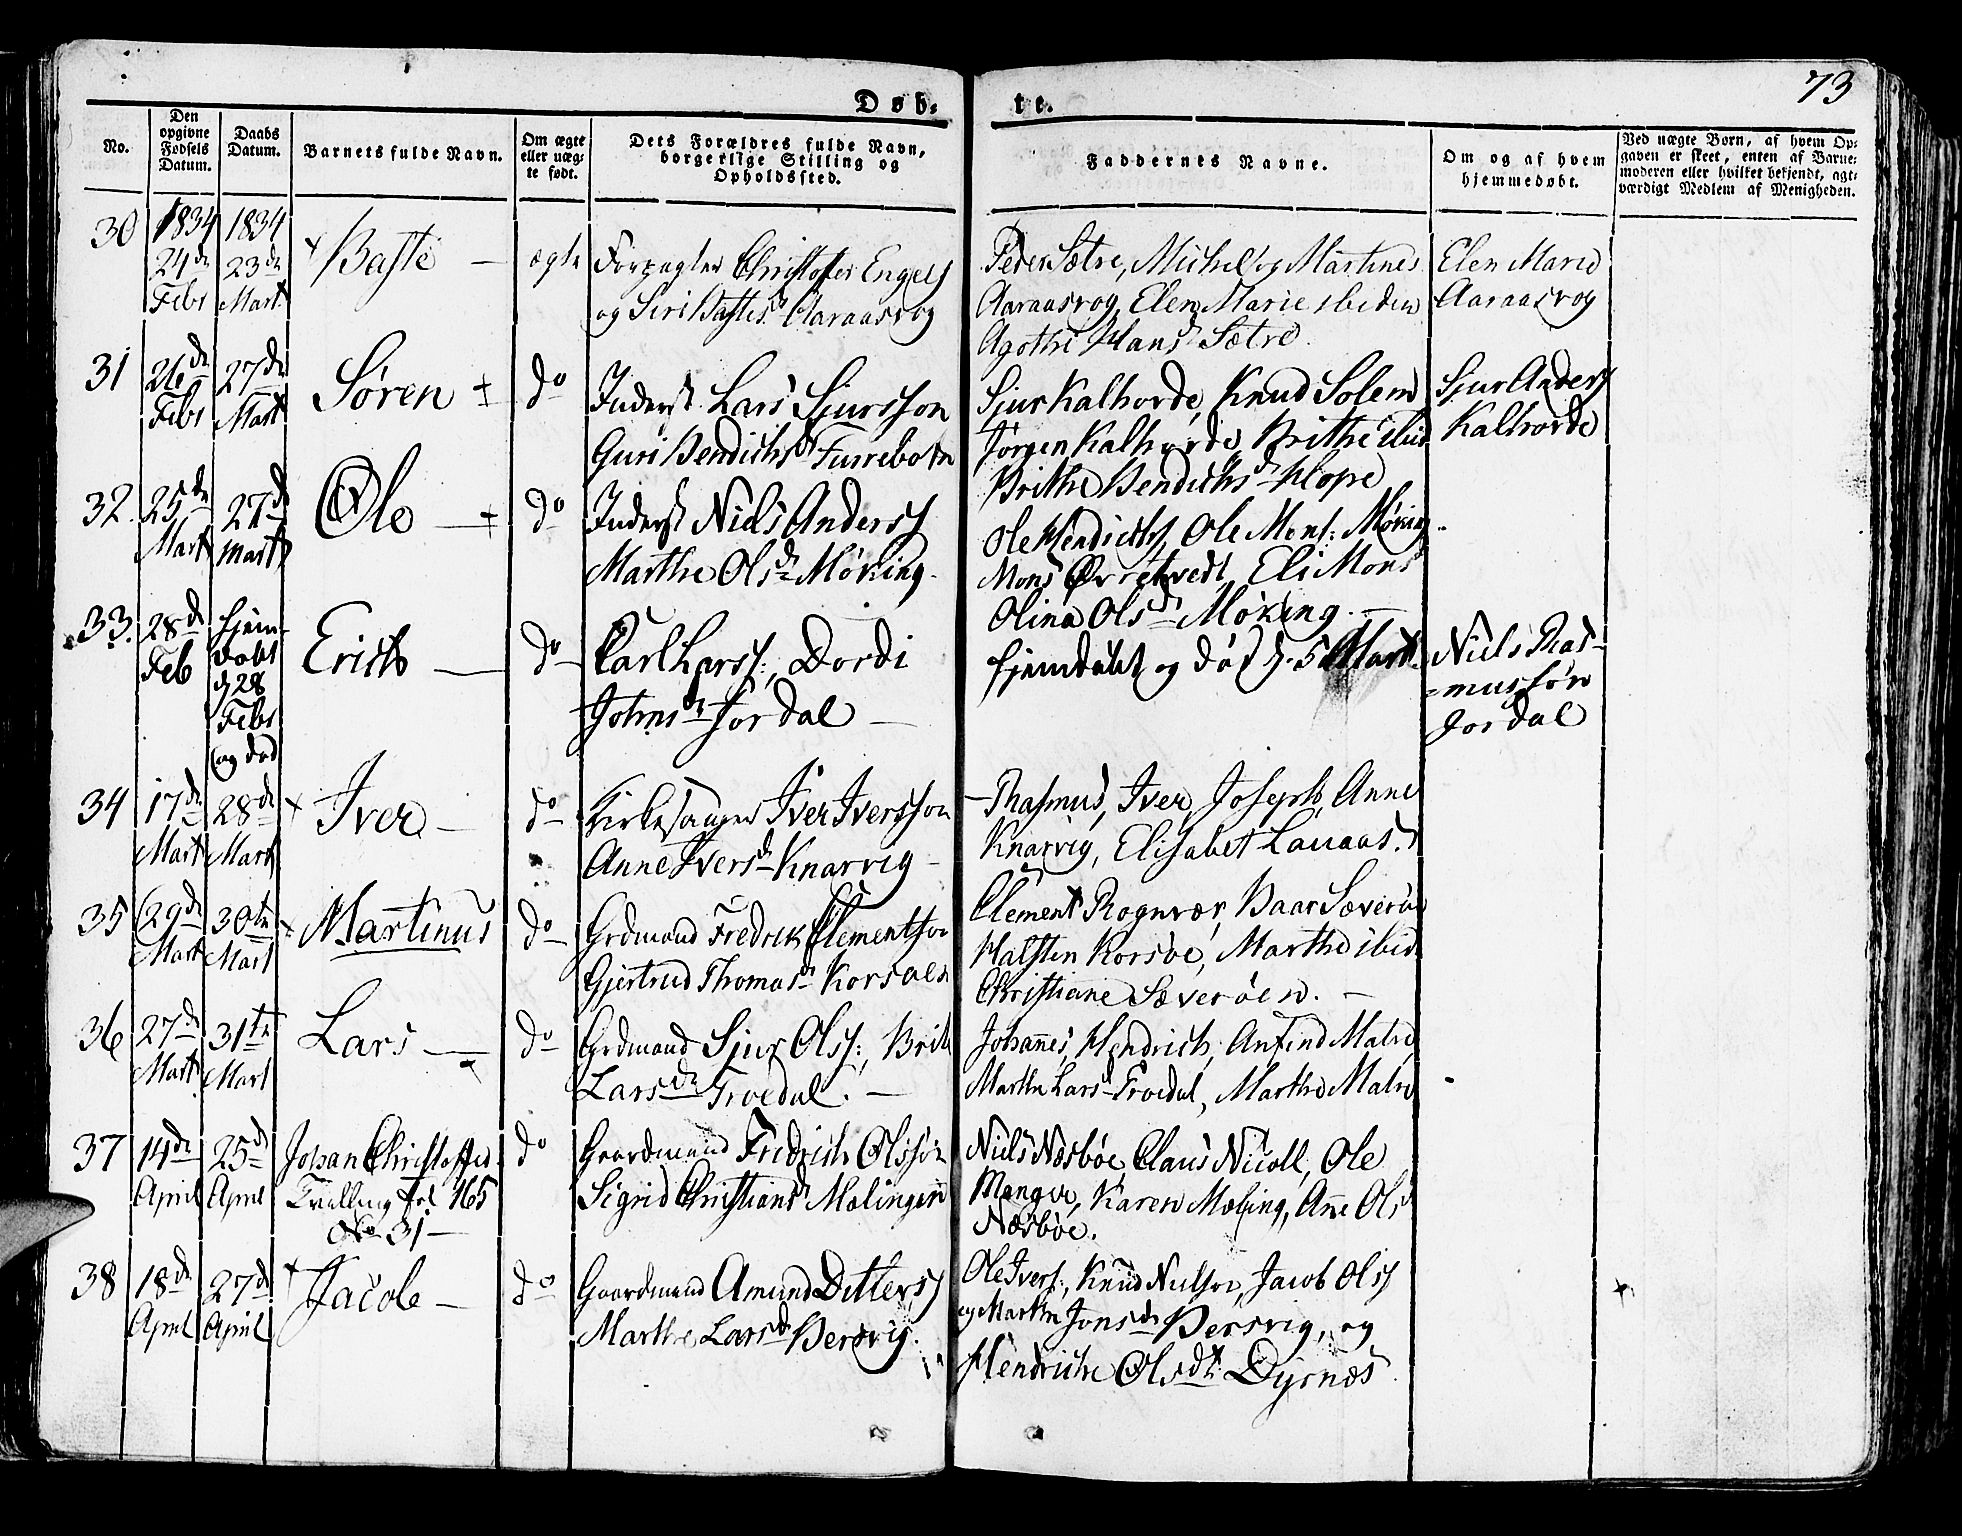 73
Døb-
te.
No.
Den opgivne Fødsels Datum.
Daabs Datum.
Barnets fulde Navn.
Om ægte eller uæg-
te født.
Dets Forældres fulde Navn,
borgerlige Stilling og
Opholdssted.
Faddernes Navne.
Om og af hvem
hjemmedøbt.
Ved uægte Børn, af hvem Op-
gaven er skeet, enten af Barne-
moderen eller hvilket bekjendt, agt-
værdigt Medlem af Menigheden.
30
1834
24de
Febr
1834
23de
Mart
Baste —
ægte
Forpagter Christoffer Engels
og Siri Bastesd Aaraasvog
Peder Sætre, Michel og Martines
Aaraasvog, Elen Marie ibiden
Agothe Hansd Sætre
Elen Marie
Aaraasvog
31
26de
Febr
27de
Mart
Søren
do
Inderst Lars Sjursson
Guri Bendichsd Furrebotn
Sjur Kalhovde, Knud Solem
Jørgen Kalhovde, Brithe ibid
Brithe Bendichsd Hope
Sjur Anders
Kalhovde
32.
25de
Mart
27d
Mart
Ole —
do
Inderst Niels Anderss
Marthe Olsd Møking.
Ole Hendichs, Ole Mons: Møking
Mons Øvretvedt, Eli Mons
Olina Olsd Møking. —
33.
28d
Feb
hjem-
døbt
d 28
Febr
og død
Erich —
do
Carl Larss:, Dordi
Johnsdr Jordal —
hjemdøbt og død d. 5 Mart.
Niels Ras-
musson
Jordal
34
17de
Mart
28de
Mart
Iver —
do
Kirkesanger Iver Iversson
Anne Iversd Knarvig —
Rasmus, Iver, Joseph, Anne
Knarvig, Elisabet Lauaas.
35
29de
Mart
30te
Mart
Martinus
do
Grdmand Fredrik Clementson
Gjertrud Thomasd Korsøen
Clement Rognvær, Baar Sæverøe
Halsten Korsøe, Marthe ibid.
Christiane Sæverøen. —
36
27de
Mart
31te
Mart
Lars —
do
Grdmand Sjur Olss:, Brite
Larsdr Froedal. —
Johannes, Hendrich, Anfind Matre
Marthe Larsd Froedal, Marthe Matre
37
14de
April
25de
April
Johan Christoffer
Tvilling fol 165
No 31 —
do
Gaardmand Fredrich Olssøn
Sigrid Christiansd Mælingen
Niels Næsbøe, Claus Nicoll, Ole
Manger, Karen Mæling, Anne Ols
Næsbøe.
38
18de
April
27de
April
Jacob —
do
Gaardmand Amund Ditlers
Marthe Larsd Bersvig.
Ole Ivers:, Knud Nielson, Jacob Ols
og Marthe Jonsdr Bersvig, og
Hendriche Olsdr Dyrnæs